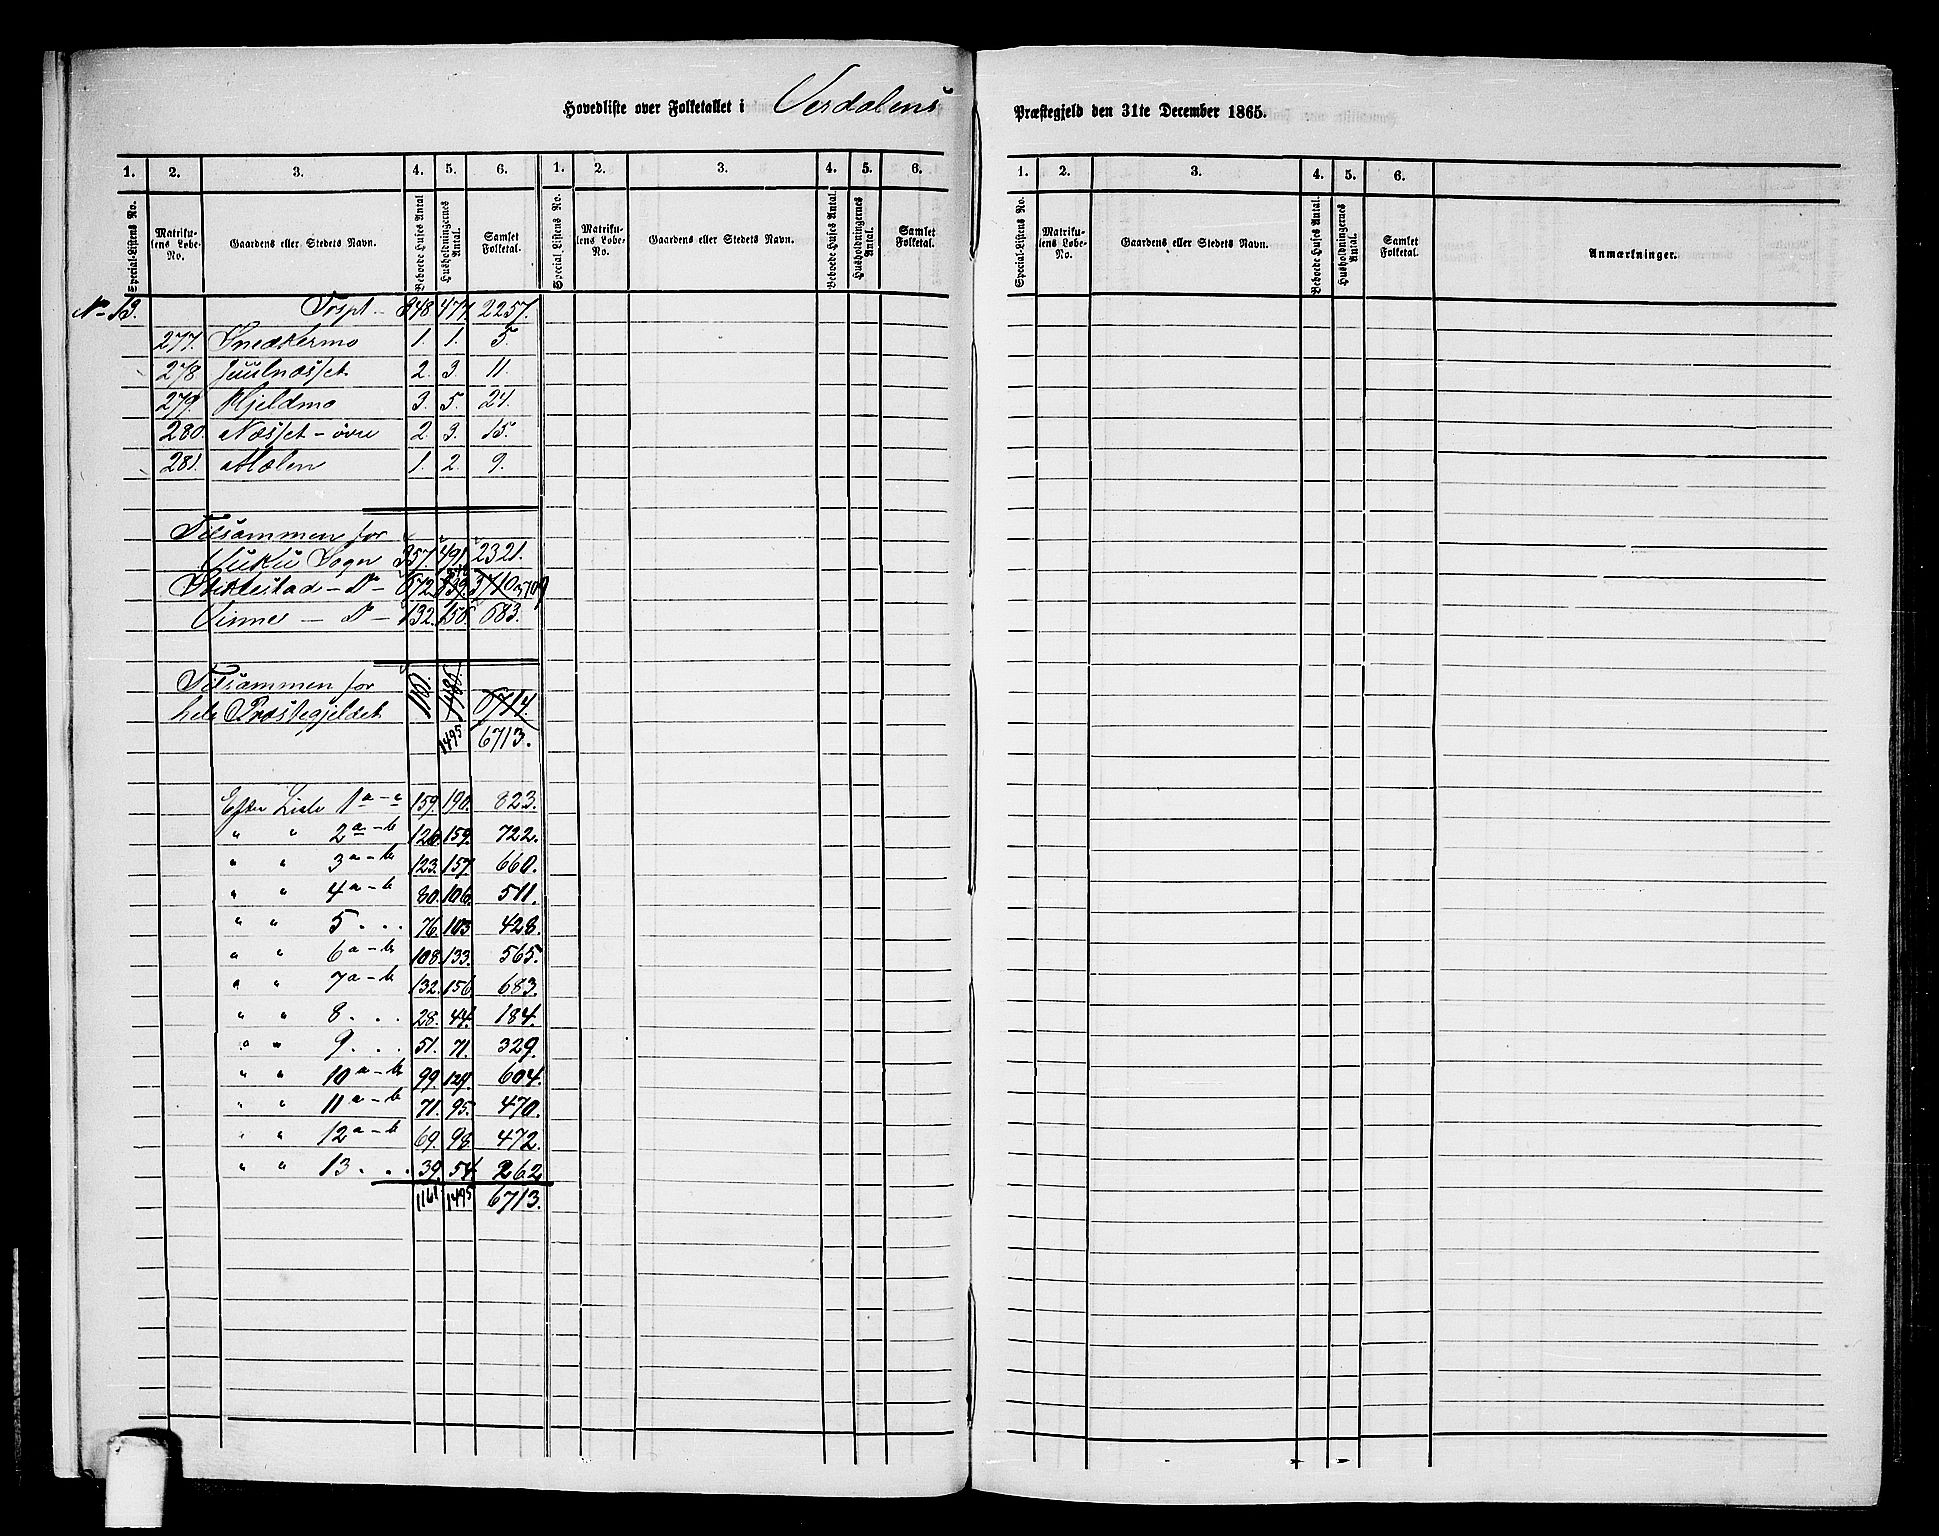 Hovedliste over Folketallet i Verdalens Præstegjeld den 31te December 1865.
1. 2. 3. 4. 5. 6. 1. 2. 3. 4. 5. 6.
Special-Listens No. Matrikulens Løbe-No. Gaardens eller Stedets Navn. Beboede Huses Antal Husholdningernes Antal. Samlet Folketal. Special-Listens No. Matrikulens Løbe-No. Gaardens eller Stedets Navn. Beboede Huses Antal. Husholdningernes Antal. Samlet Folketal.
No 13. Trspt — 348 477. 2257.
277. Snedkermo 1. 1. 5.
278 Juulnæsset 2. 3. 11.
279. Hjeldmo 3. 5. 24.
280. Næsset – övre 2. 3. 15.
281. Mælen 1. 2. 9.
Tilsammen for
Vuku Sogn 357. 491. 2321.
Stiklestad – Do – 672. 3710 3709
Vinne — Do – 132. 156. 683.
Tilsammen for
hele Præstegjeldet 1161. 1485. 6714.
1495 6713.
Efter Liste 1 a-c 159. 190. 823.
" " 2 a-b 126. 159. 722.
" " 3 a-b 123. 157. 660.
" " 4 a-b 80. 106. 511.
" " 5 . . . 76. 103 428.
" " 6 a-b 108. 133. 565.
" " 7 a-b 132. 156. 683.
" " 8 . . . 28. 44. 184.
" " 9 . . . 51. 71. 329.
" " 10 a-b 99. 129. 604.
" " 11 a-b 71. 95. 470.
" " 12 a-b 69. 98. 472.
" " 13 . . . 39. 54. 262
1161 1495 6713.
1. 2. 3. 4. 5. 6.
Special-Listens No. Matrikulens Løbe-No. Gaardens eller Stedets Navn. Beboede Huses Antal. Husholdningernes Antal. Samlet Folketal. Anmærkninger.